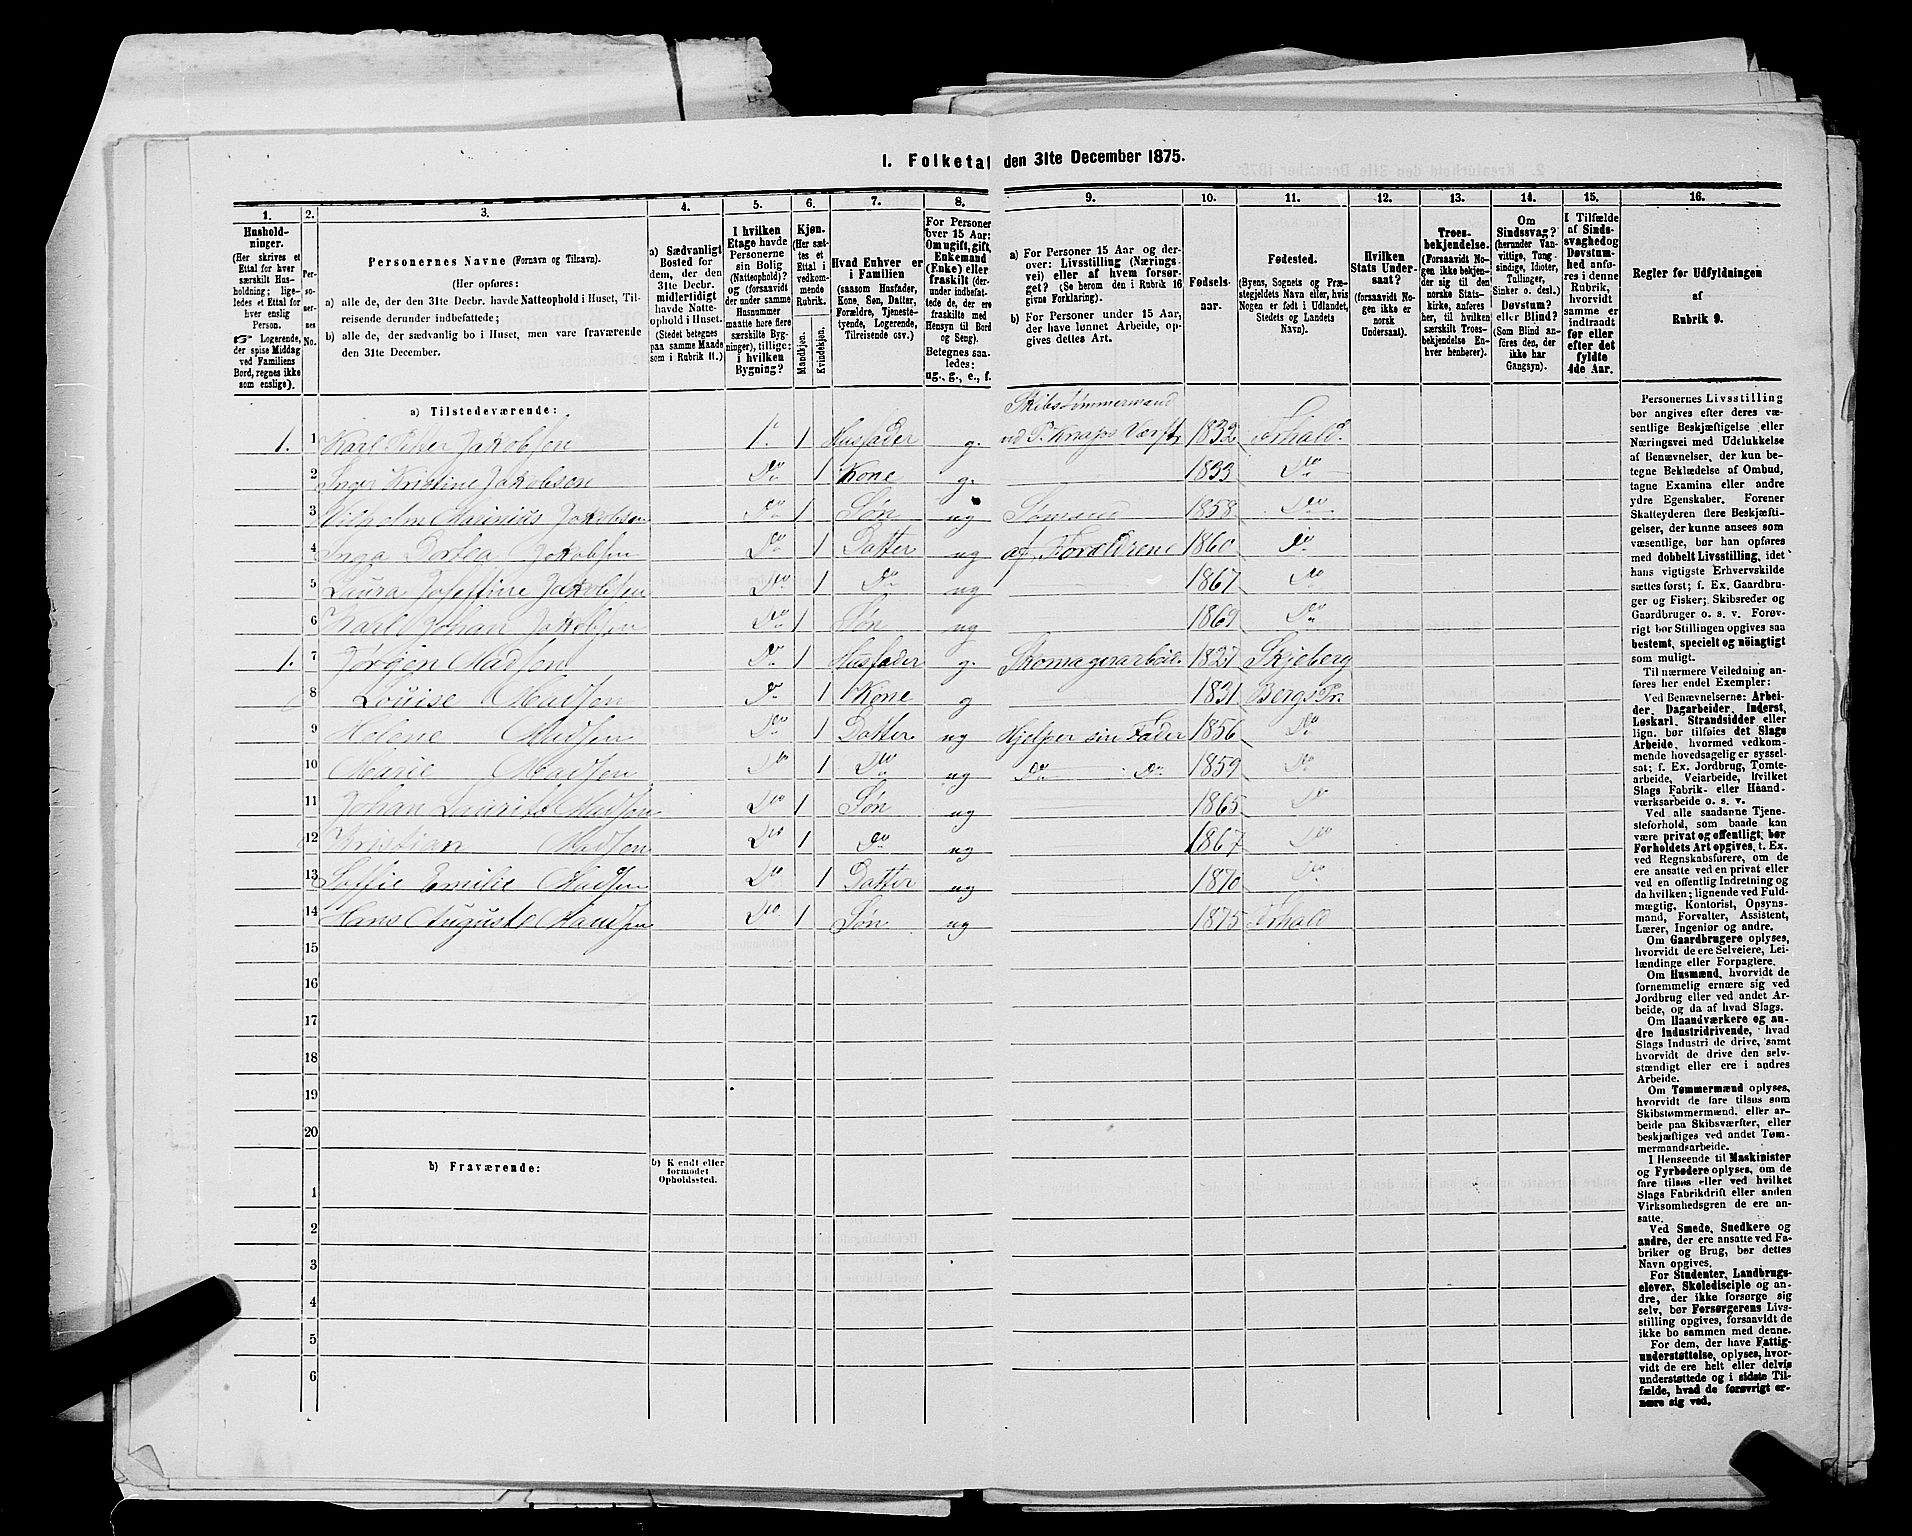 I. Folketæ den 31te December 1875.
1. 2. 3. 4. 5. 6. 7. 8. 9. 10. 11. 12. 13. 14. 15. 16.
Hushold-
ninger.
(Her skrives et
Ettal for hver
særskilt Hus-
holdning; lige-
ledes et Ettal for
hver enslig
Person.
☞ Logerende,
der spise Middag
ved Familiens
Bord, regnes ikke
som enslige).
Per-
so-
ner-
nes
No.
Personernes Navne (Fornavn og Tilnavn).
(Her opføres:
a) alle de, der den 31te Decbr. havde Natteophold i Huset, Til-
reisende derunder indbefattede;
b) alle de, der sædvanlig bo i Huset, men vare fraværende
den 31te December.
a) Sædvanligt
Bosted for
dem, der den
31te Decbr.
midlertidigt
havde Natte-
ophold i Huset.
(Stedet betegnes
paa samme Maade
som i Rubrik 11.)
I hvilken
Etage havde
Personerne
sin Bolig
(Natteophold)?
og (forsaavidt
der under samme
Husnummer
maatte høre flere
særskilte Byg-
ninger), tillige:
i hvilken
Bygning?
Kjøn.
(Her sæt-
tes et
Ettal i
vedkom-
mende
Rubrik.
Mandkjøn.
Kvindekjøn.
Hvad Enhver er
i Familien
(saasom Husfader,
Kone, Søn, Datter,
Forældre, Tjeneste-
tyende, Logerende,
Tilreisende osv.)
For Personer
over 15 Aar:
Om ugift, gift,
Enkemand
(Enke) eller
fraskilt (der-
under indbefat-
tede de, der ere
fraskilte med
Hensyn til Bord
og Seng).
Betegnes saa-
ledes:
ug., g., e., f.
a) For Personer 15 Aar og der-
over: Livsstilling (Nærings-
vei) eller af hvem forsør-
get? (Se herom den i Rubrik 16
givne Forklaring).
b) For Personer under 15 Aar,
der have lønnet Arbeide, op-
gives dettes Art.
Fødsels-
aar.
Fødested.
(Byens, Sognets og Præ-
stegjeldets Navn eller, hvis
Nogen er født i Udlandet,
Stedets og Landets
Navn).
Hvilken
Stats Under-
saat?
(forsaavidt No-
gen ikke er
norsk
Undersaat).
Troes-
bekjendelse.
(Forsaavidt No-
gen ikke bekjen-
der sig til den
norske Stats-
kirke, anføres
her, til hvilken
særskilt Troes-
bekjendelse En-
hver henhører).
Om
Sindssvag?
(herunder Van-
vittige, Tung-
sindige, Idioter,
Tullinger,
Sinker o. desl.)
Døvstum?
eller Blind?
(Som Blind an-
føres den, der
ikke har
Gangsyn).
I Tilfælde
af Sinds-
svaghed og
Døvstum-
hed anfø-
res i denne
Rubrik,
hvorvidt
samme er
indtraadt
før eller
efter det
fyldte
4de Aar.
Regler for Udfyldningen
af
Rubrik 9.
a) Tilstedeværende:
Skibstømmermand
1. 1 Karl Peter Jakobsen 1. 1 Husfader g. ved P. Knaps Værft 1832 Torhald.
2 Inger Kristine Jakobsen Do 1 Kone g. 1833 Do
3 Vilholm Marinius Jakobsen Do 1 Søn ug Sømand 1858 Do
4 Inga Dortea Jakobsen Do 1 Datter ug af Forældrene 1860 Do
5 Laura Josefine Jakobsen Do 1 Do ug 1867 Do
6 Karl Johan Jakobsen Do 1 Søn ug 1869 Do
1. 7 Jørgen Madsen Do 1 Husfader g. Skomagerarbeid. 1827 Skjeberg
8 Louise Madsen Do 1 Kone g 1831 Bergs Pr.
9 Helene Madsen Do 1 Datter ug Hjelper sin Fader 1856 Do
10 Marie Madsen Do 1 Do ug Do Do 1859 Do
11 Johan Laurits Madsen Do 1 Søn ug 1865 Do
12 Kristian Madsen Do 1 Do ug 1867 Do
13 Soffie Emilie Madsen Do 1 Datter ug 1870 Do
14 Hans Auguste Madsen Do 1 Søn ug 1875 Torhald
15
16
17
18
19
20
b) Fraværende:
b) Kjendt eller
formodet
Opholdssted.
1
2
3
4
5
6
Personernes Livsstilling
bør angives efter deres væ-
sentlige Beskjæftigelse eller
Næringsvei med Udelukkelse
af Benævnelser, der kun be-
tegne Beklædelse af Ombud,
tagne Examina eller andre
ydre Egenskaber. Forener
Skatteyderen flere Beskjæfti-
gelser, der kunne ansees som
væsentlige, bør han opføres
med dobbelt Livsstilling, idet
hans vigtigste Erhvervskilde
sættes først; f. Ex. Gaardbru-
ger og Fisker; Skibsreder og
Gaardbruger o. s. v. Forøv-
rigt bør Stillingen opgives saa
bestemt, specielt og nøiagtigt
som muligt.
Til nærmere Veiledning an-
føres her endel Exempler:
Ved Benævnelserne: Arbei-
der, Dagarbeider, Inderst,
Løskarl, Strandsidder eller
lign. bør tilføies det Slags
Arbeide, hvormed vedkom-
mende hovedsagelig er syssel-
sat; f. Ex. Jordbrug, Tomte-
arbeide, Veiarbeide, hvilket
Slags Fabrik- eller Haand-
værksarbeide o. s. v.
Ved alle saadanne Tjene-
steforhold, som baade kan
være privat og offentligt, bør
Forholdets Art opgives, t. Ex.
ved Regnskabsførere, om de
ere ansatte ved en privat eller
ved en offentlig Indretning og
da hvilken; lignende ved Fuld-
mægtig, Kontorist, Opsyns-
mand, Forvalter, Assistent,
Lærer, Ingeniør og andre.
Om Gaardbrugere oplyses,
hvorvidt de ere Selveiere, Lei-
lændinge eller Forpagtere.
Om Husmænd, hvorvidt de
fornemmelig ernære sig ved
Jordbrug eller ved andet Ar-
beide, og da af hvad Slags.
Om Haandværkere og an-
dre Industridrivende, hvad
Slags Industri de drive, samt
hvorvidt de drive den selv-
stændigt eller ere i andres
Arbeide.
Om Tømmermænd oplyses,
hvorvidt de fare tilsøs som
Skibstømmermænd, eller ar-
beide paa Skibsværfter, eller
beskjæftiges ved andet Tøm-
mermandsarbeide.
I Henseende til Maskinister
og Fyrbødere oplyses, om de
fare tilsøs eller ved hvilket
Slags Fabrikdrift eller anden
Virksomhedsgren de ere an-
satte.
Ved Smede, Snedkere og
andre, der ere ansatte ved Fa-
briker og Brug, bør dettes
Navn opgives.
For Studenter, Landbrugs-
elever, Skoledisciple og an-
dre, der ikke forsørge sig
selv, bør Forsørgerens Livs-
stilling opgives, forsaavidt de
ikke bo sammen med denne.
For dem, der have Fattig-
understøttelse, oplyses, hvor-
vidt de ere helt eller delvis
understøttede og i sidste Til-
fælde, hvad de forøvrigt er-
nære sig ved.